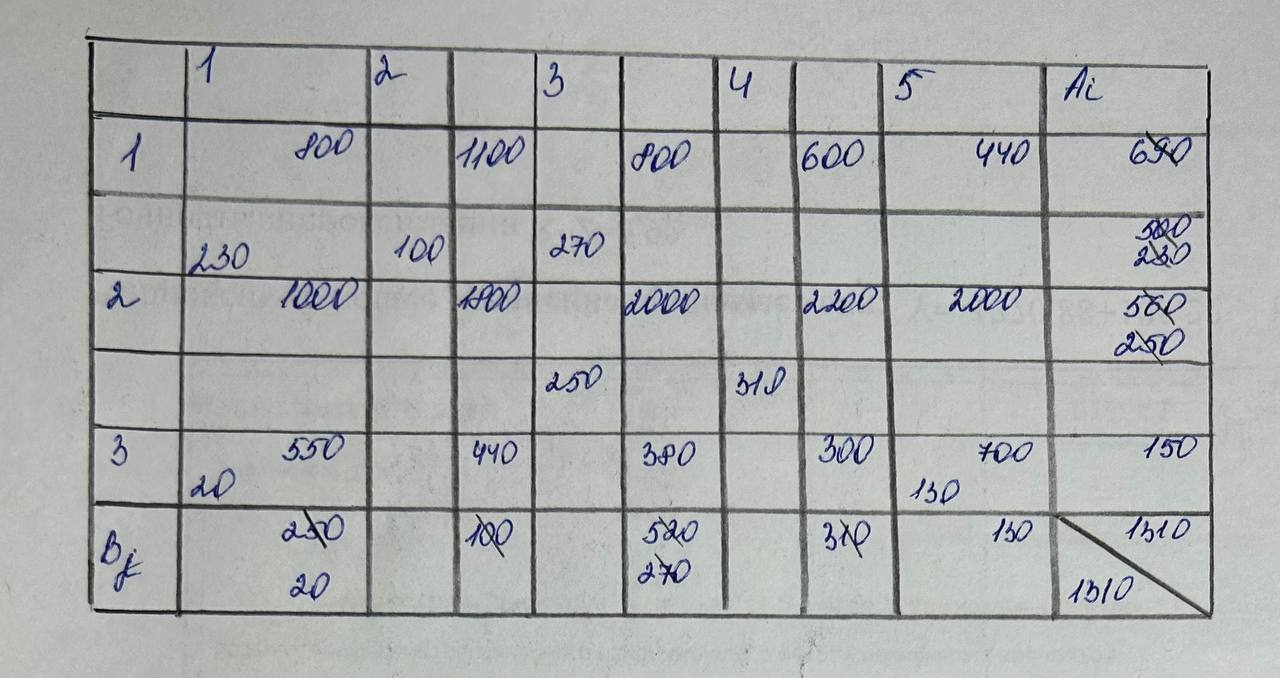 1 2 3 4 5 Ai
1 800 1100 800 600 440 690
500
230 100 270 230
2 1000 1800 2000 2200 2000 560
250
250 310
3 550 440 380 300 700 150
20 130
Bj 250 100 520 310 130 1310
20 270 1310